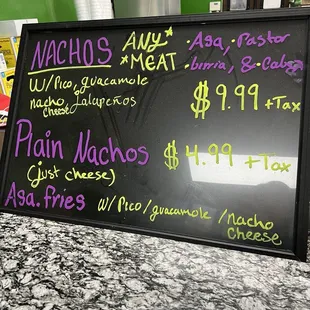 NACHOS ANY* *MEAT · Asa, · Pastor
· birria, & · Cabeza
w/Pico, guacamole
nacho cheese, Jalapeños $9.99 +Tax
Plain Nachos $4.99 +Tax
(just cheese)
Asa. fries w/ Pico/guacamole/nacho cheese